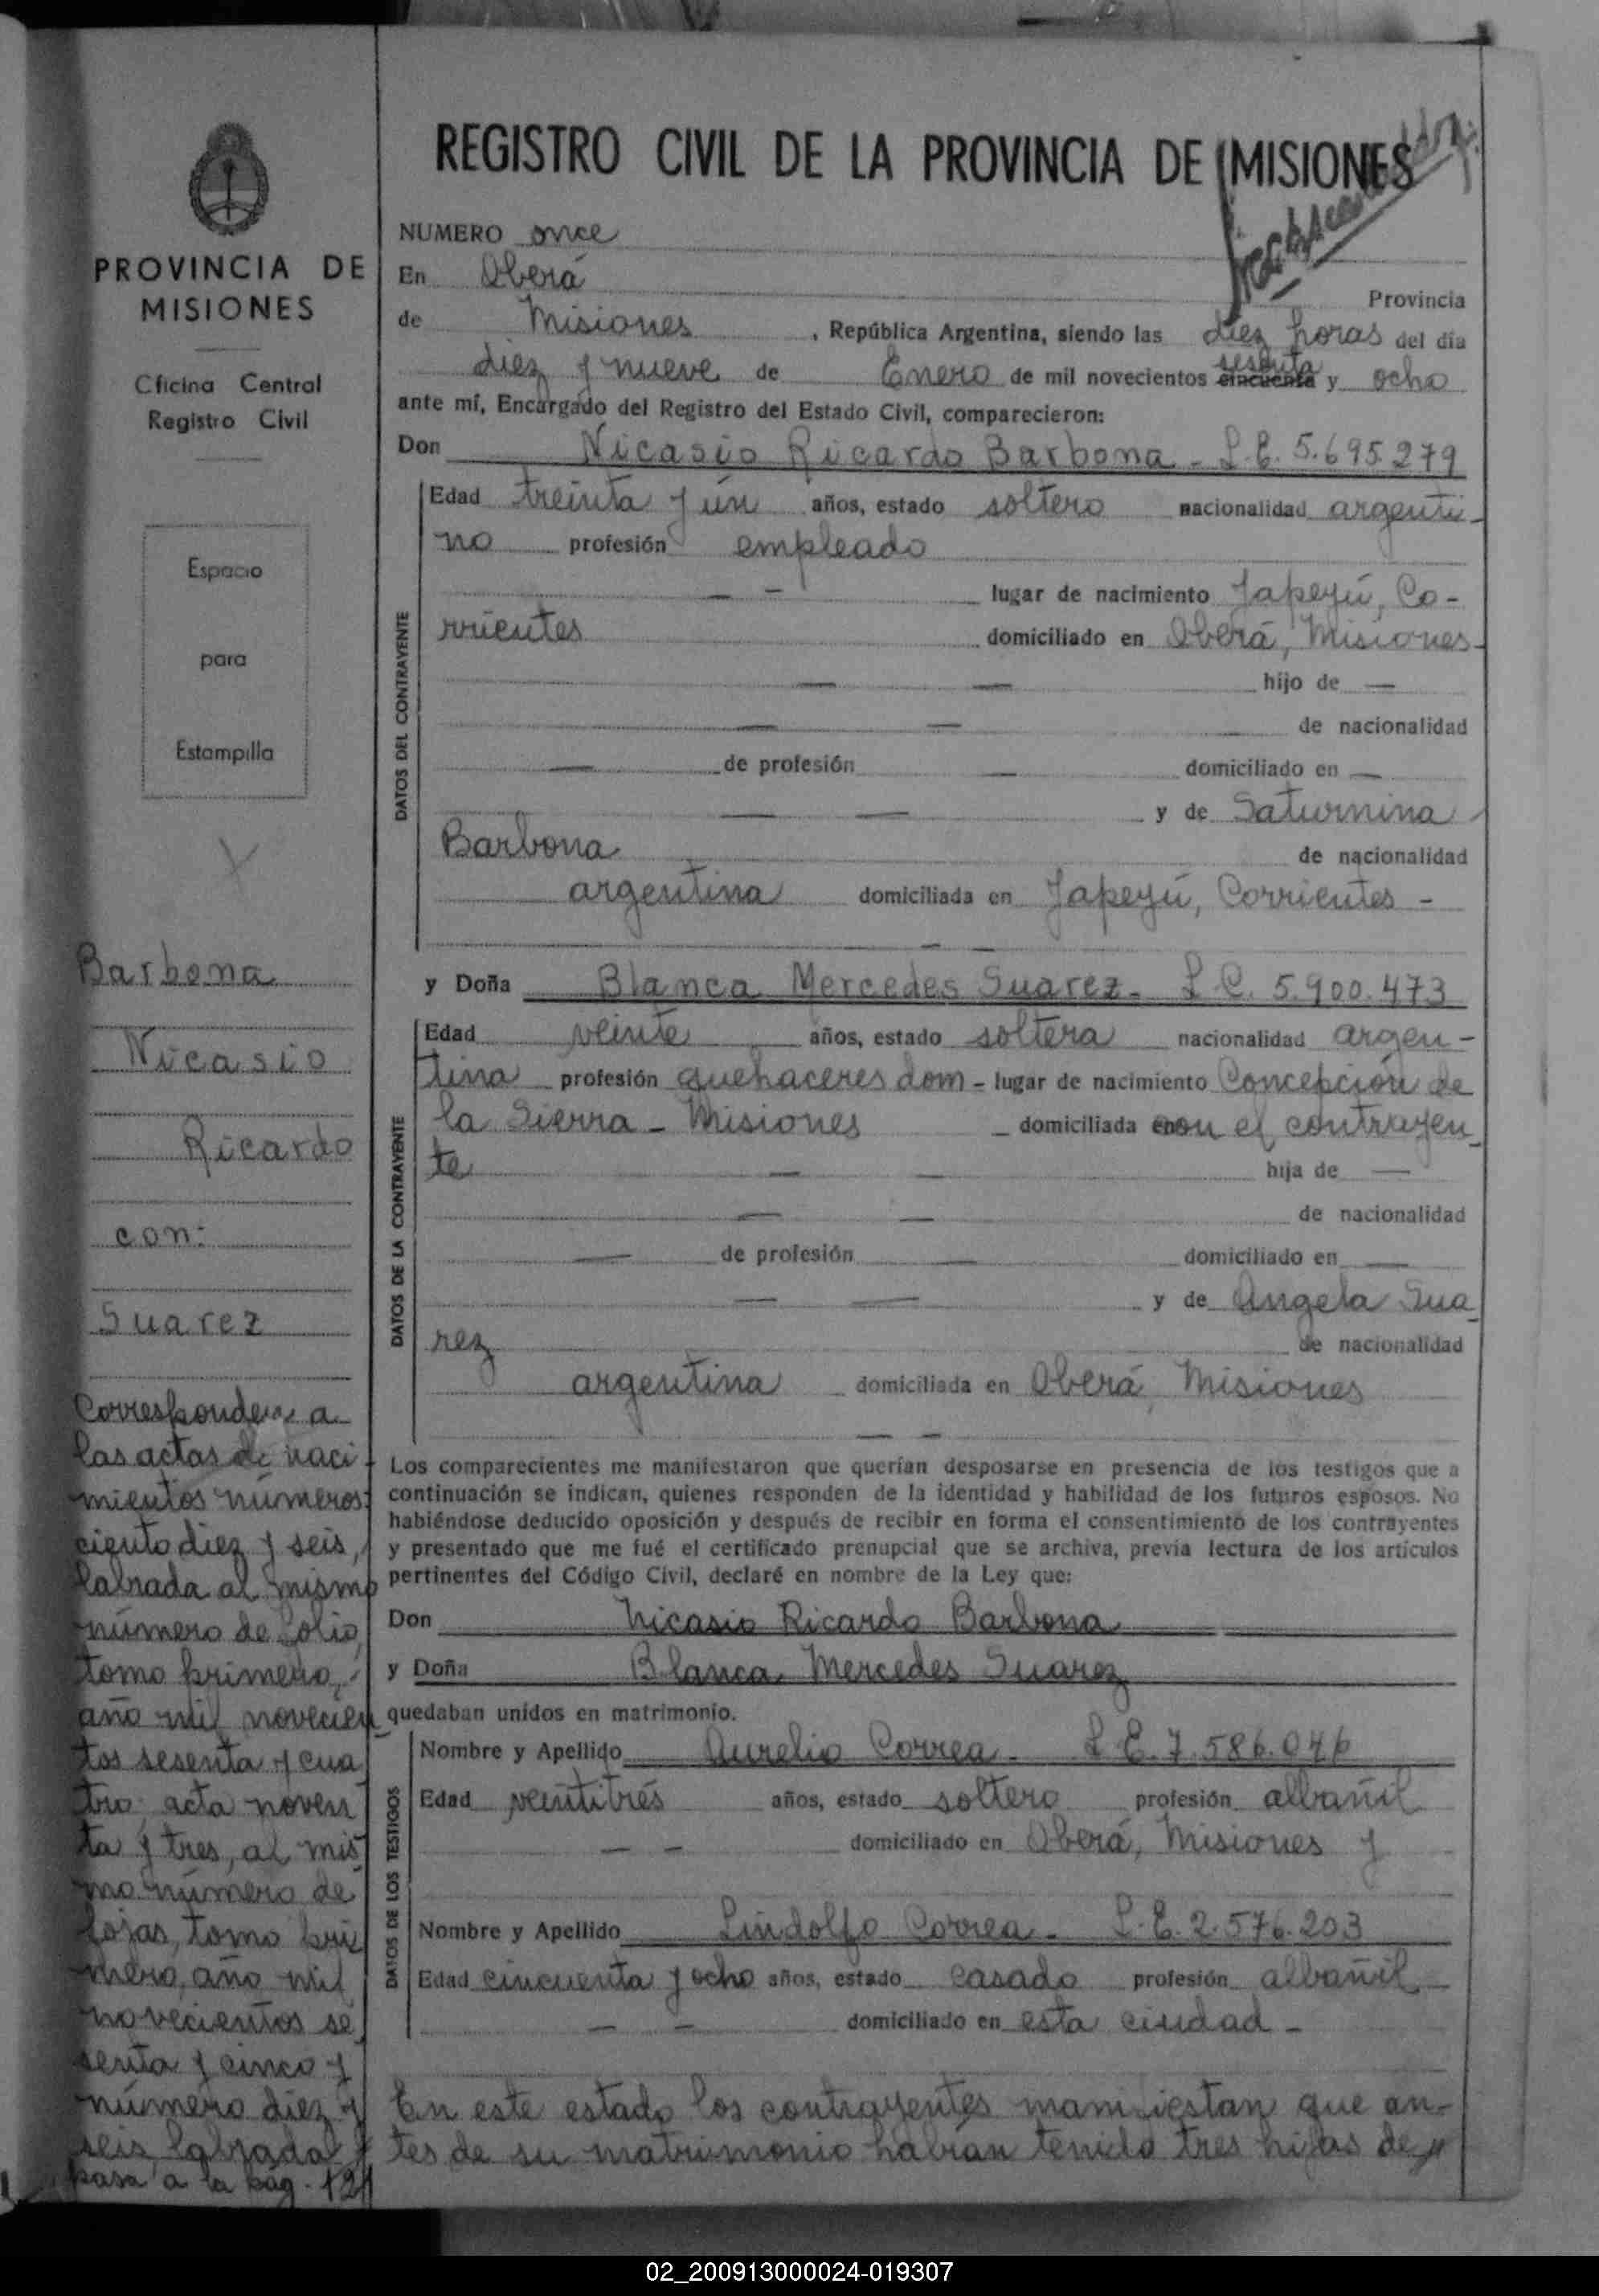 PROVINCIA DE
MISIONES
Oficina Central
Registro Civil
Espacio
para
Estampilla
Barbona
Nicasio
Ricardo
con:
Suarez
Corresponden a
las actas de naci-
mientos números:
ciento diez y seis,
labrada al mismo
número de folio,
tomo primero,
año mil novecien
tos sesenta y cua
tro; acta noven
ta y tres, al mis
mo número de
fojas, tomo pri
mero, año mil
novecientos se
senta y cinco y
número diez y
seis labrada
pasa a la pág. 121
REGISTRO CIVIL DE LA PROVINCIA DE MISIONES
NUMERO once
En Oberá Provincia
de Misiones, República Argentina, siendo las diez horas del día
diez y nueve de Enero de mil novecientos cincuenta sesenta y ocho
ante mí, Encargado del Registro del Estado Civil, comparecieron:
Don Nicasio Ricardo Barbona - L.E. 5.695.279
DATOS DEL CONTRAYENTE
Edad treinta y ún años, estado soltero nacionalidad argenti-
no profesión empleado
- - lugar de nacimiento Yapeyú, Co-
rrientes domiciliado en Oberá, Misiones-
— — hijo de —
— — de nacionalidad
— de profesión — domiciliado en —
— — y de Saturnina
Barbona de nacionalidad
argentina domiciliada en Yapeyú, Corrientes -
- -
y Doña Blanca Mercedes Suarez - L.C. 5.900.473
DATOS DE LA CONTRAYENTE
Edad veinte años, estado soltera nacionalidad argen-
tina profesión quehaceres dom - lugar de nacimiento Concepción de
la Sierra - Misiones - domiciliada con el contrayen-
te — — hija de —
— — de nacionalidad
— de profesión — domiciliado en —
— — y de Angela Sua-
rez de nacionalidad
argentina domiciliada en Oberá, Misiones
— —
Los comparecientes me manifestaron que querían desposarse en presencia de los testigos que a
continuación se indican, quienes responden de la identidad y habilidad de los futuros esposos. No
habiéndose deducido oposición y después de recibir en forma el consentimiento de los contrayentes
y presentado que me fué el certificado prenupcial que se archiva, previa lectura de los artículos
pertinentes del Código Civil, declaré en nombre de la Ley que:
Don Nicasio Ricardo Barbona
y Doña Blanca Mercedes Suarez
quedaban unidos en matrimonio.
DATOS DE LOS TESTIGOS
Nombre y Apellido Aurelio Correa - L.E. 7.586.046
Edad veintitrés años, estado soltero profesión albañil
- - domiciliado en Oberá, Misiones y
Nombre y Apellido Lindolfo Correa - L.E. 2.576.203
Edad cincuenta y ocho años, estado casado profesión albañil
- - domiciliado en esta ciudad -
En este estado los contrayentes manifiestan que an-
tes de su matrimonio habían tenido tres hijas de
02_200913000024-019307